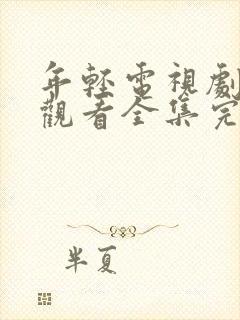 年輕電視劇
觀看全集完
半夏